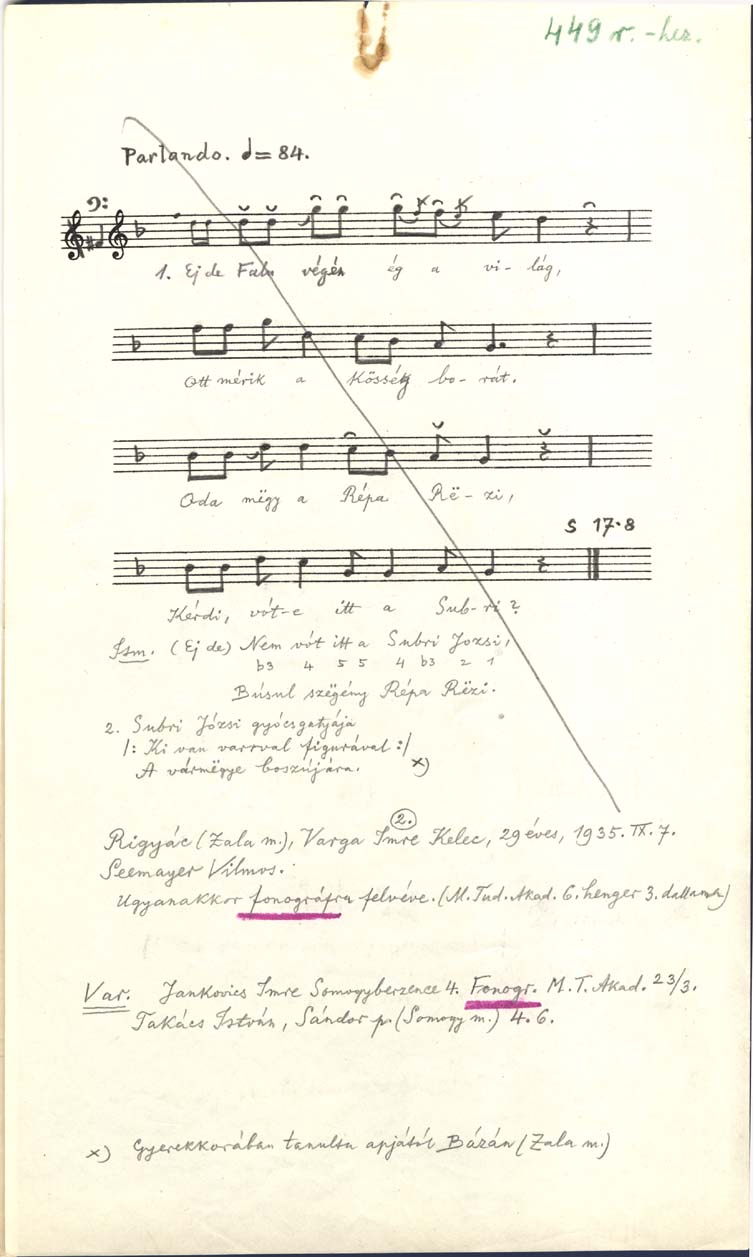 449 r. -hez.
Parlando. ♩= 84.
1. Ej de Falu végén ég a vi- lág,
Ott mérik a Kösség bo- rát.
Oda mëgy a Répa Rë- zi,
S 17·8
Kérdi, vót-e itt a Sub-ri?
Ism. (Ej de) Nem vót itt a Subri Jozsi,
b3 4 5 5 4 b3 2 1
Búsul szëgény Répa Rëzi.
2. Subri Józsi gyócsgatyájá
/: Ki van varrval figurával :/
A vármëgye boszújára. x)
2.
Rigyác (Zala m.), Varga Imre Kelec, 29 éves, 1935. IX. 7.
Seemayer Vilmos.
Ugyanakkor fonográfra felvéve. (M. Tud. Akad. 6. henger 3. dallama)
Var. Jankovics Imre Somogyberzence 4. Fonogr. M. T. Akad. 23/3.
Takács István, Sándor p. (Somogy m.) 4. 6.
x) Gyerekkorában tanulta apjától Bázán (Zala m.)